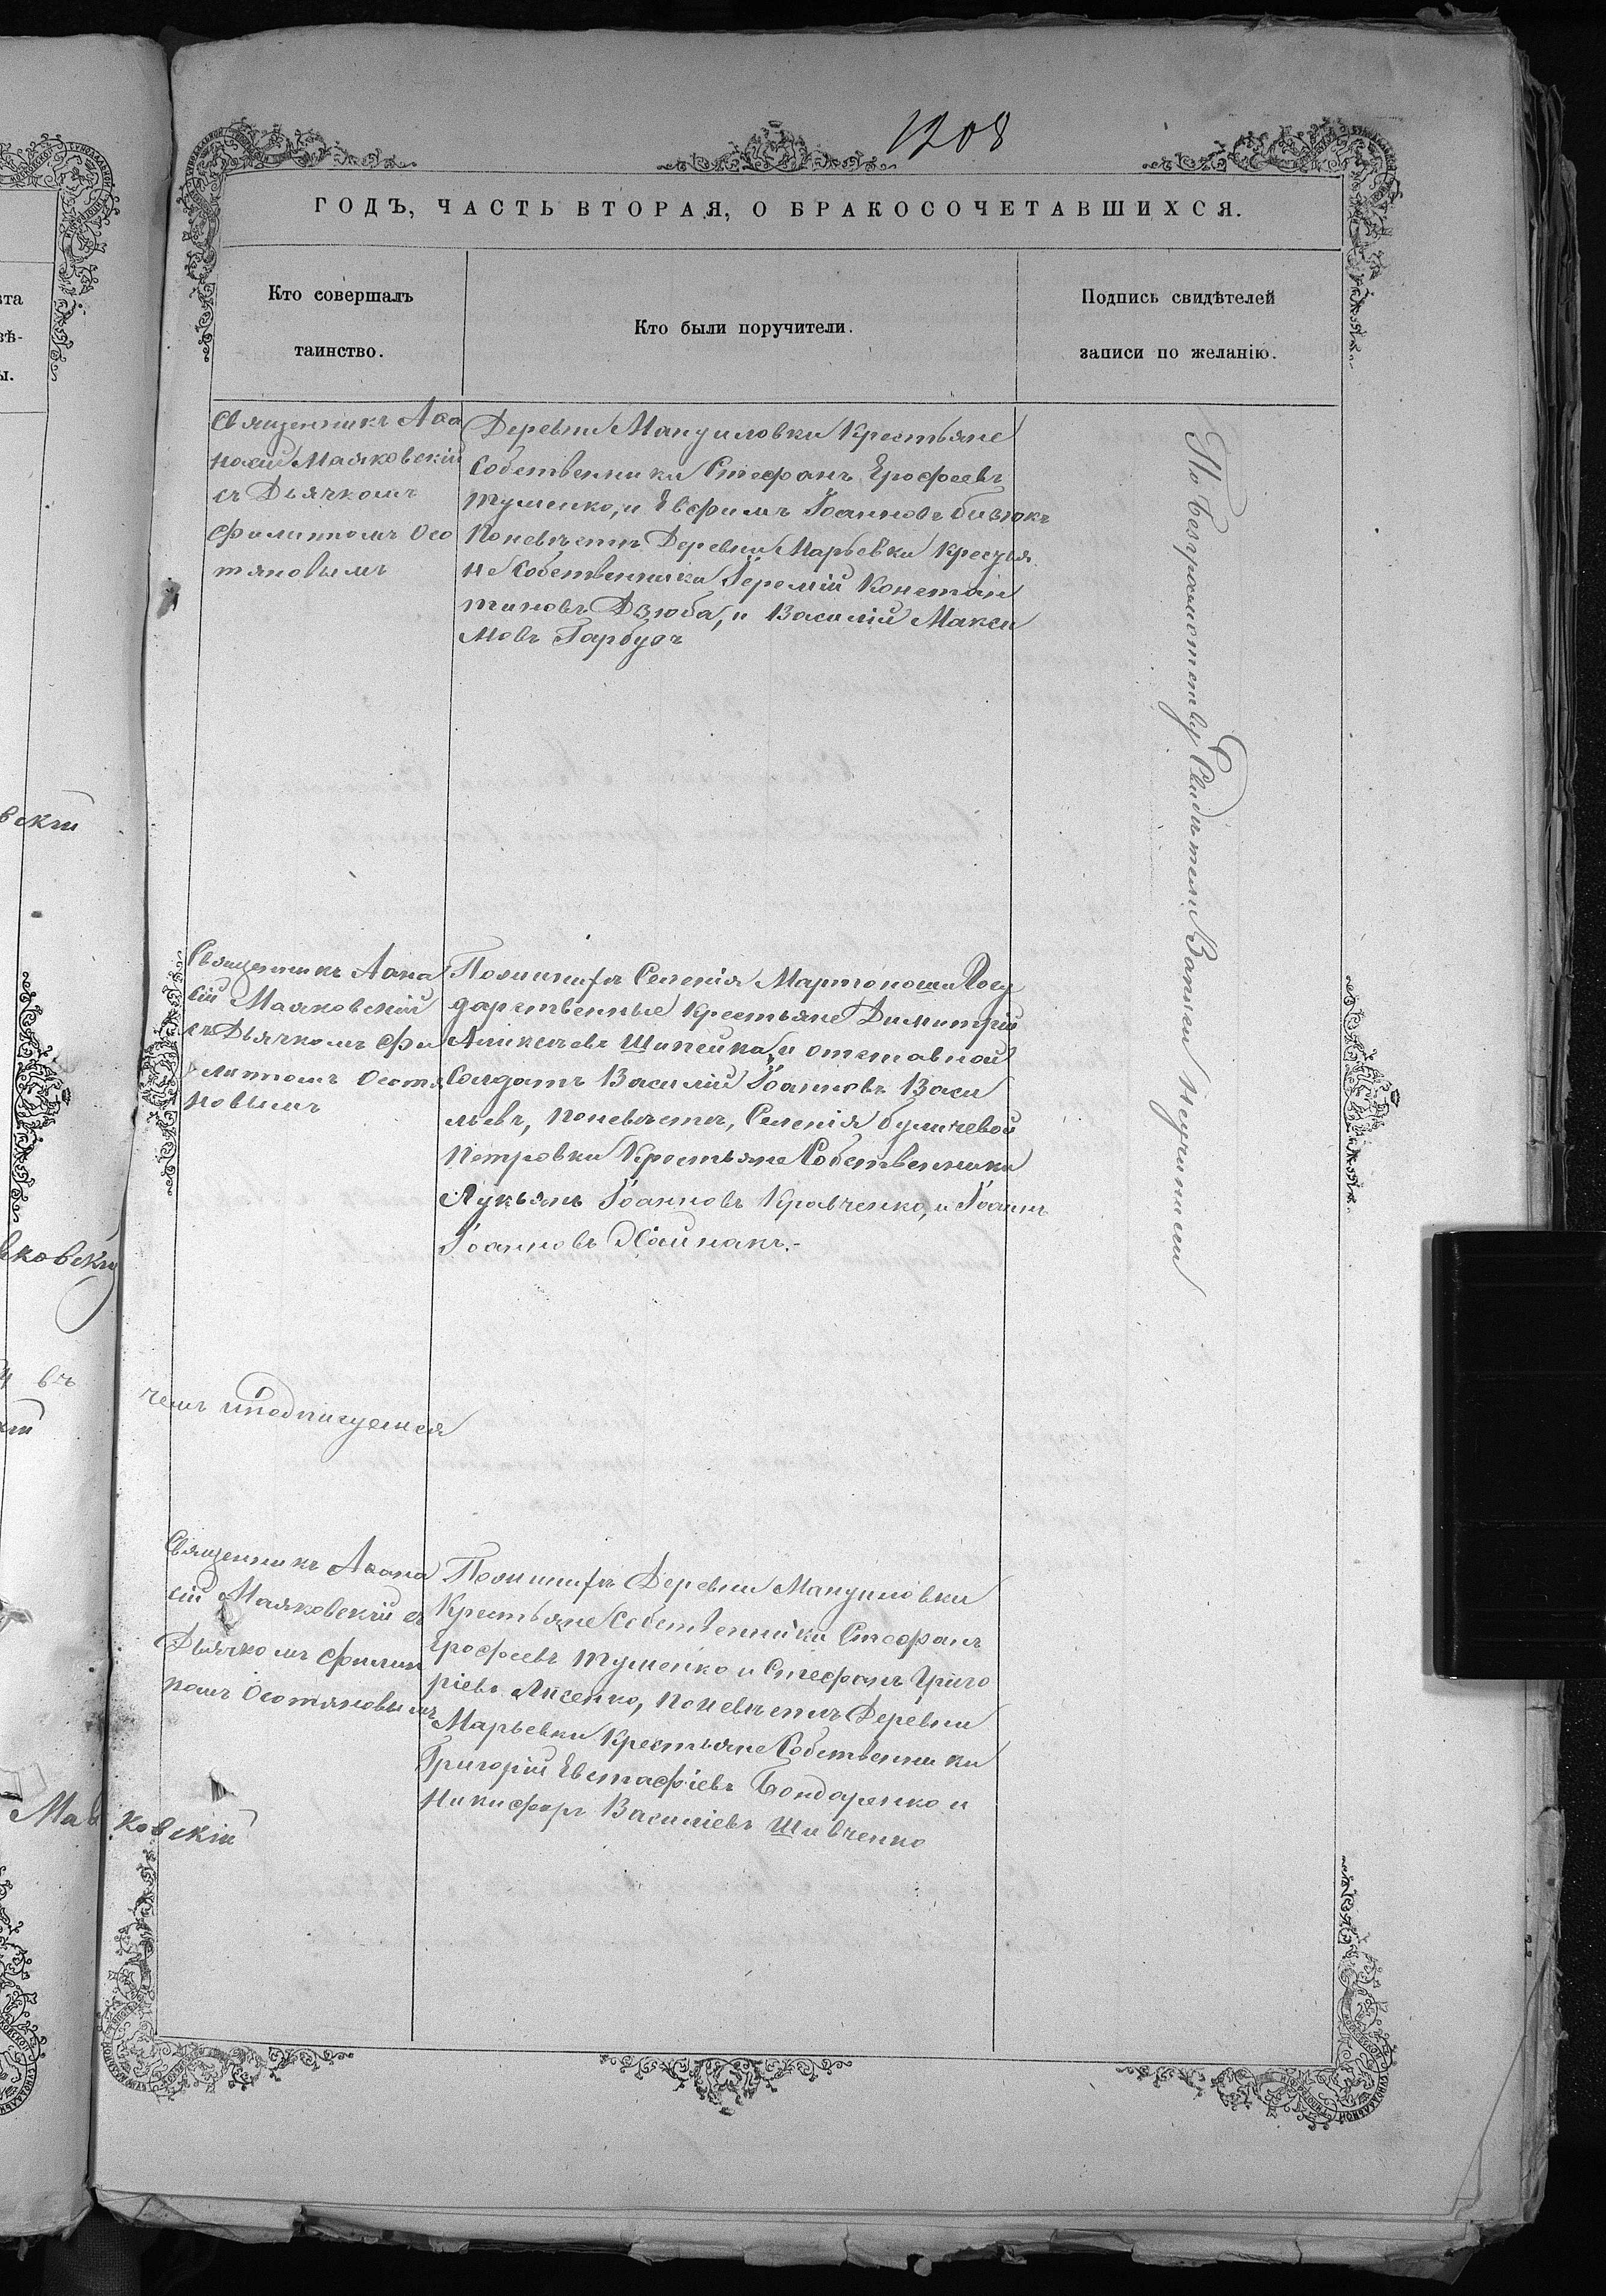 1208
ГОДЪ, ЧАСТЬ ВТОРАЯ, О БРАКОСОЧЕТАВШИХСЯ.
Кто совершалъ
таинство.
Кто были поручители.
Подпись свидѣтелей
записи по желанію.
Священникъ Аѳа
насій Маяковскій
съ Дьячкомъ
Филиппомъ Осо
тяновымъ
Деревни Мануиловки Крестьяне
Собственники Стефанъ Ерофеевъ
Туменко, и Евфимъ Іоанновъ Бивюкъ
Поневѣстѣ Деревни Марьевки Крестья
не Собственники Іеремій Констан
тиновъ Дзюба, и Василій Макси
мовъ Гарбузъ
По безграмотству Свидѣтели Записи Неучинили
Священникъ Аѳана
сій Маяковскій
съ Дьячкомъ Фи
липпомъ Осотя
новымъ
Пожинихѣ Селенія Мартоноши Госу
дарственные Крестьяне Димитрій
Аликсѣевъ Шипейка, и отставной
Солдатъ Василій Іоанновъ Васи
льевъ, Поневѣстѣ, Селенія Буличевой
Петровки Крестьяне Собственники
Лукьянъ Іоанновъ Кравченко, и Іоаннъ
Іоанновъ Хайнакъ.-
чемъ иподписуемся
Священникъ Аѳана
сій Маяковскій съ
Дьячкомъ Филип
помъ Осотяновымъ
Пожинихѣ Деревни Мануиловки
Крестьяне Собственники Стефанъ
Ерофеевъ Туменко и Стефанъ Григо
ріевъ Лисенко, Поневѣстѣ Деревни
Марьевки Крестьяне Собственники
Григорій Евстафіевъ Бондаренко и
Никифоръ Василіевъ Шивченко
Маяковскій